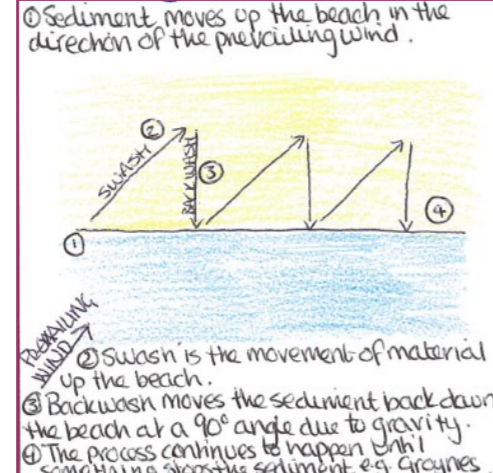 ① Sediment moves up the beach in the
direction of the prevailing wind.
②
SWASH
BACKWASH
③
④
①
PREVAILING
WIND
② Swash is the movement of material
up the beach.
③ Backwash moves the sediment back down
the beach at a 90° angle due to gravity.
④ The process continues to happen until
something stops the sediment e.g. Groynes